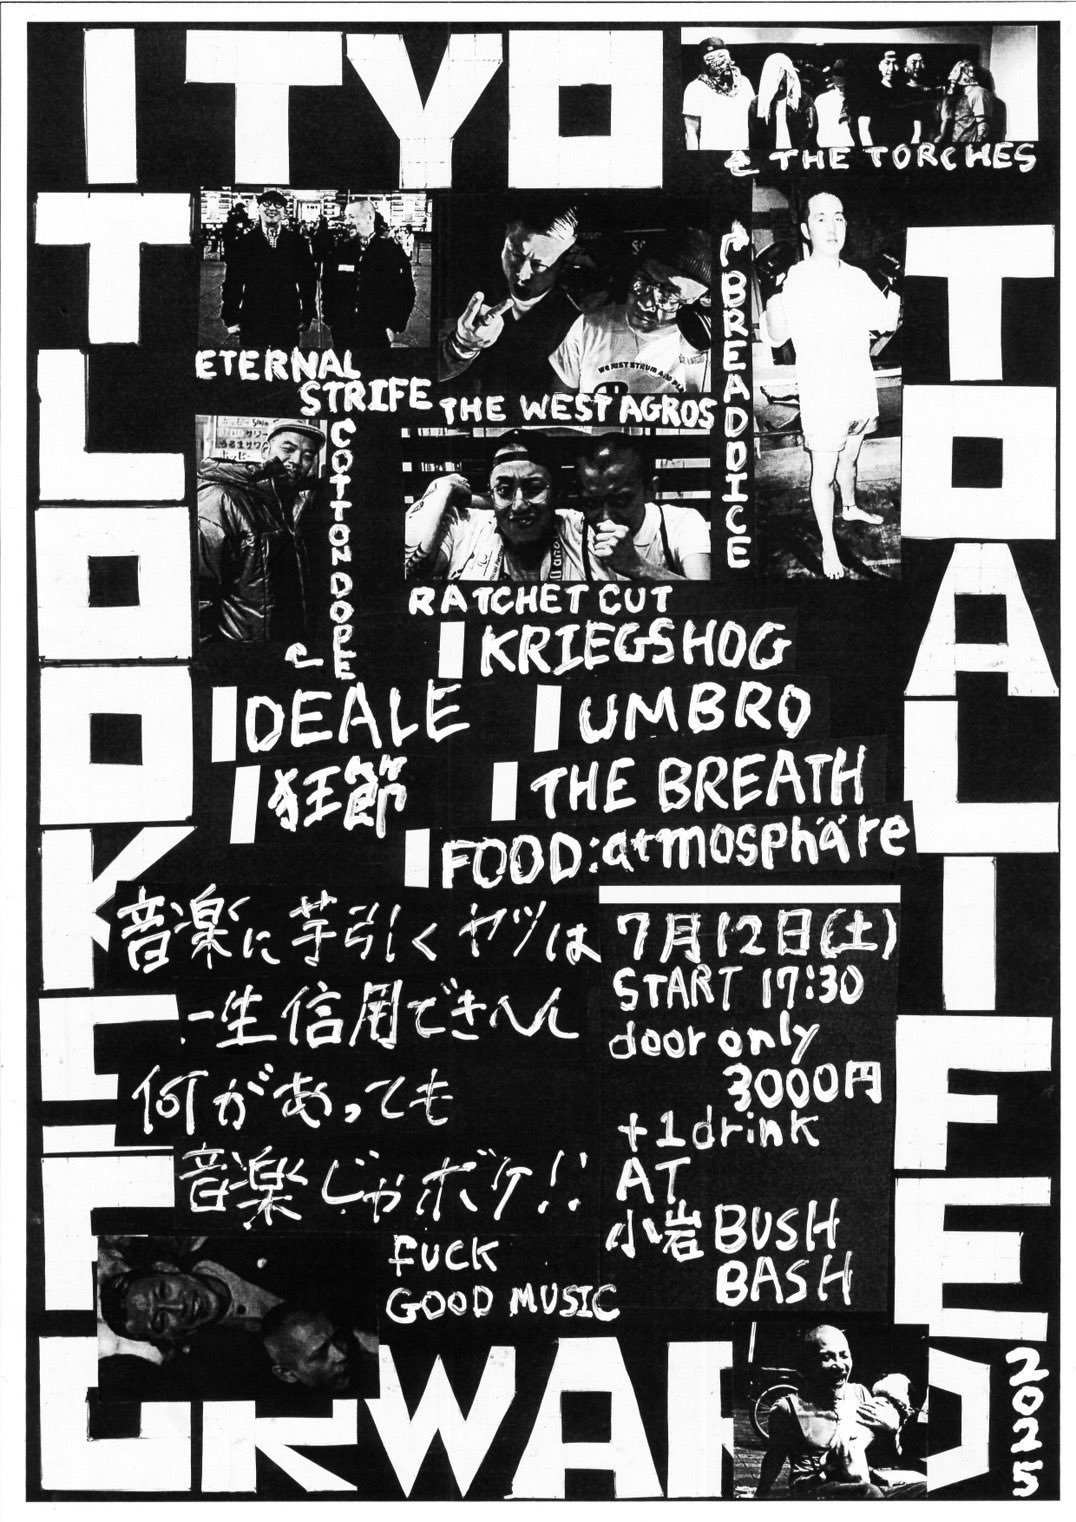 ITYO
TOTALIFE
TLOOK F
RWARD
2025
THE TORCHES
ETERNAL
STRIFE
THE WEST AGROS
BREADDICE
COTTON DOPE
RATCHET CUT
KRIEGSHOG
DEALE
UMBRO
狂節
THE BREATH
FOOD:atmosphäre
音楽に芋引くヤツは
一生信用できへん
何があっても
音楽じゃボケ!!
FUCK
GOOD MUSIC
7月12日(土)
START 17:30
door only
3000円
+1drink
AT
小岩 BUSH
BASH